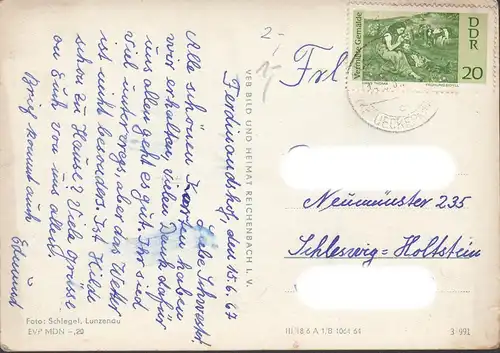 2,-
Ferdinandshof, den 15.6.67
Liebe Schwester!
Alle schönen Karten haben
wir erhalten, vielen Dank dafür
uns allen geht es gut. Ihr seid
viel unterwegs, aber das Wetter
ist nicht besonders. Ist Hilde
schon zu Hause? Viele Grüße
an Euch von uns allen.
Brief kommt auch
Foto: Schlegel, Lunzenau
EVP MDN -,20
VEB BILD UND HEIMAT REICHENBACH I. V.
Vermißte Gemälde
DDR
20
UECKER
Frl
Neumünster 235
Schleswig=Holstein
III/18/6 A 1/B 1064 64
3 991